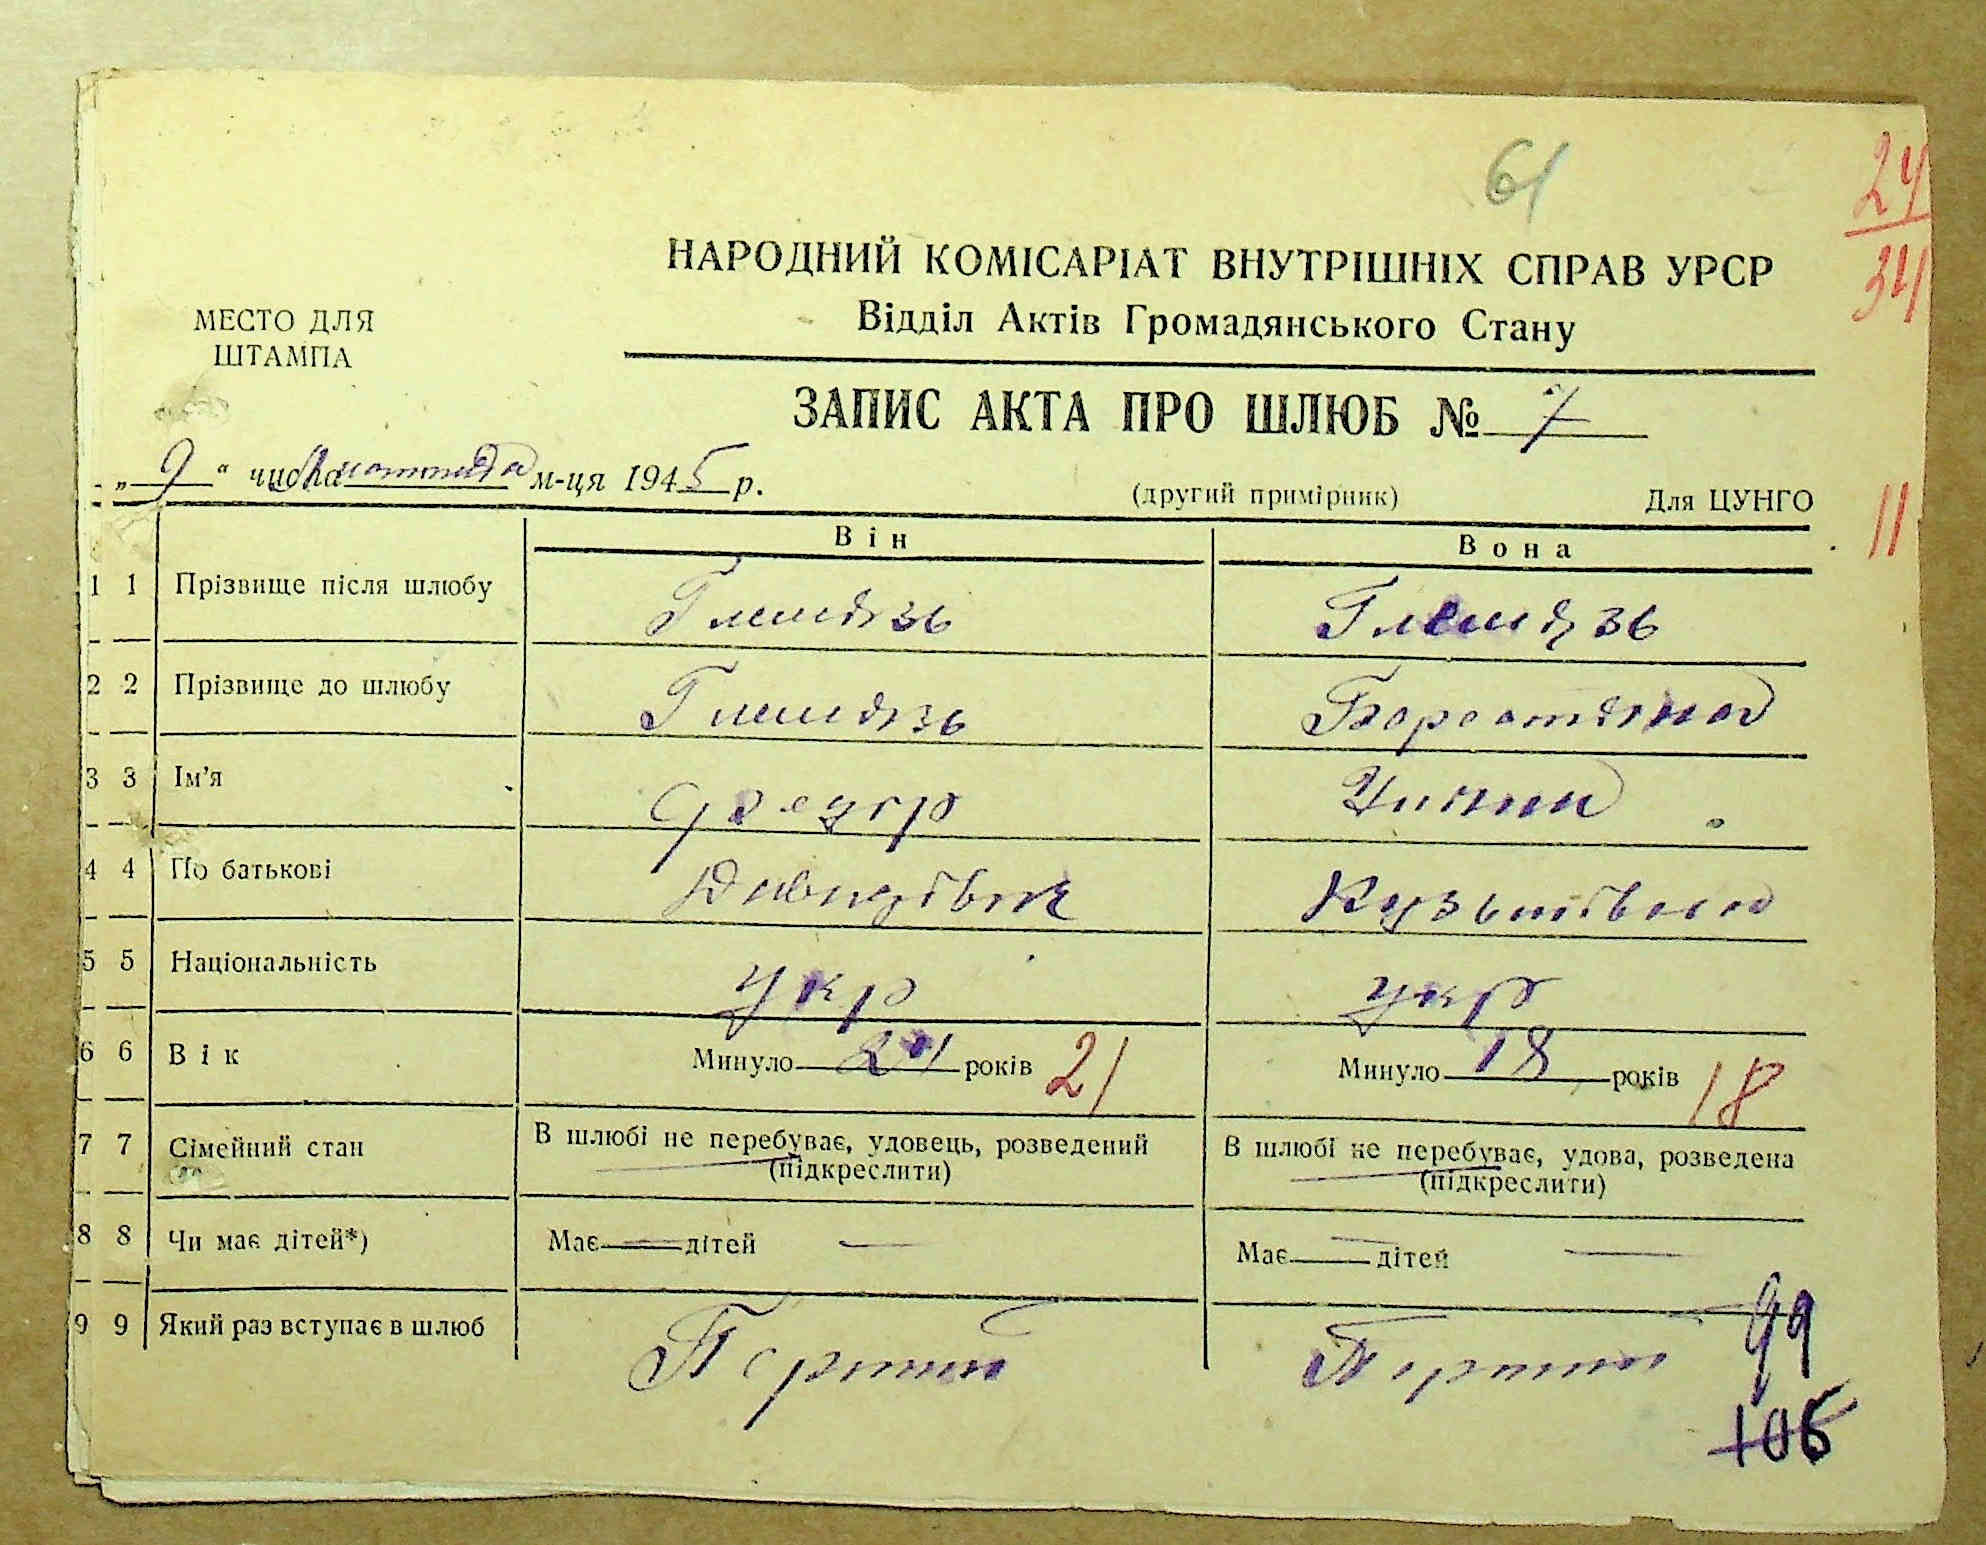 61
24
34
НАРОДНИЙ КОМІСАРІАТ ВНУТРІШНІХ СПРАВ УРСР
Відділ Актів Громадянського Стану
МЕСТО ДЛЯ
ШТАМПА
ЗАПИС АКТА ПРО ШЛЮБ № 7
„9“ числа м-ця 1945 р.
(другий примірник) Для ЦУНГО
11
Він Вона
1 1 Прізвище після шлюбу
2 2 Прізвище до шлюбу
3 3 Ім'я
4 4 По батькові Давидівич Кузьмівна
5 5 Національність укр укр
6 6 Вік Минуло 21 років 21 Минуло 18 років 18
7 7 Сімейний стан В шлюбі не перебуває, удовець, розведений В шлюбі не перебуває, удова, розведена
(підкреслити) (підкреслити)
8 8 Чи має дітей*) Має — дітей — Має — дітей —
9 9 Який раз вступає в шлюб Перший Перший
99
106